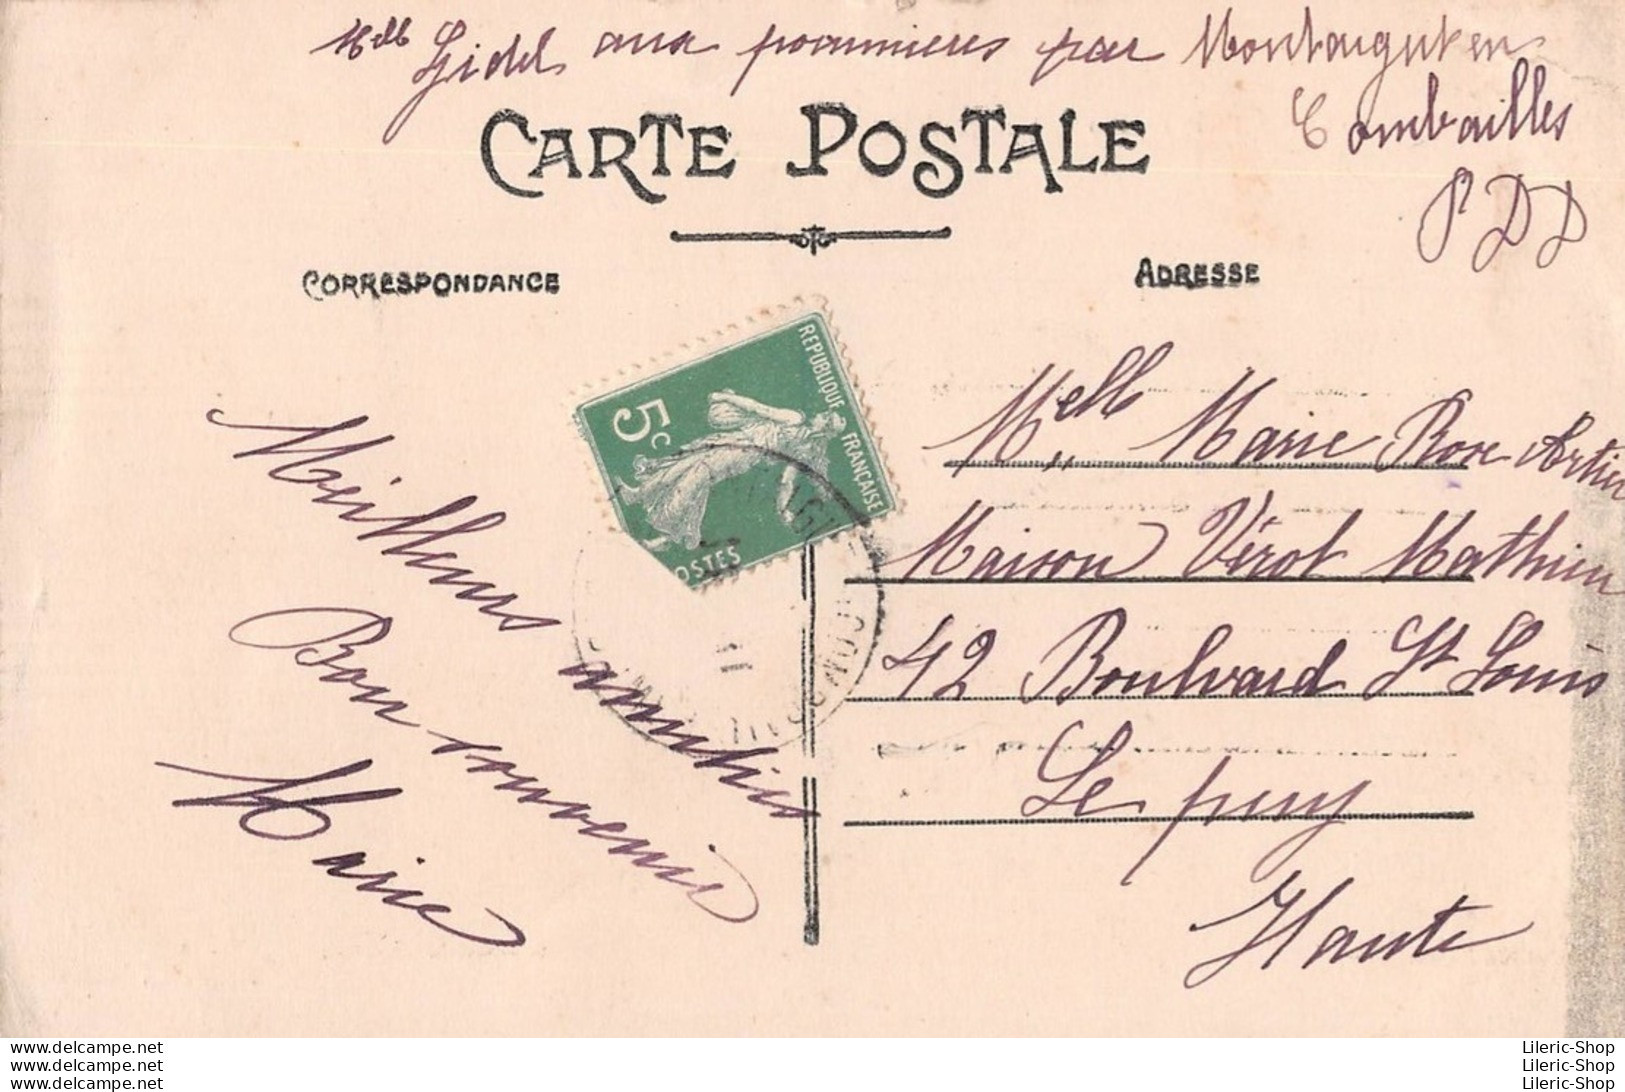 Melle Gidel aux pommiers par Montaigut en
Combailles
P D D
CARTE POSTALE
CORRESPONDANCE
ADRESSE
REPUBLIQUE FRANÇAISE
5c
OSTES
Meilleurs amitiés
Bon souvenir
Marie
Melle Marie Rose Artin
Maison Vérot Mathieu
42 Boulvard St Louis
Le puy
Haute
11
www.delcampe.net
www.delcampe.net
www.delcampe.net
Lileric-Shop
Lileric-Shop
Lileric-Shop